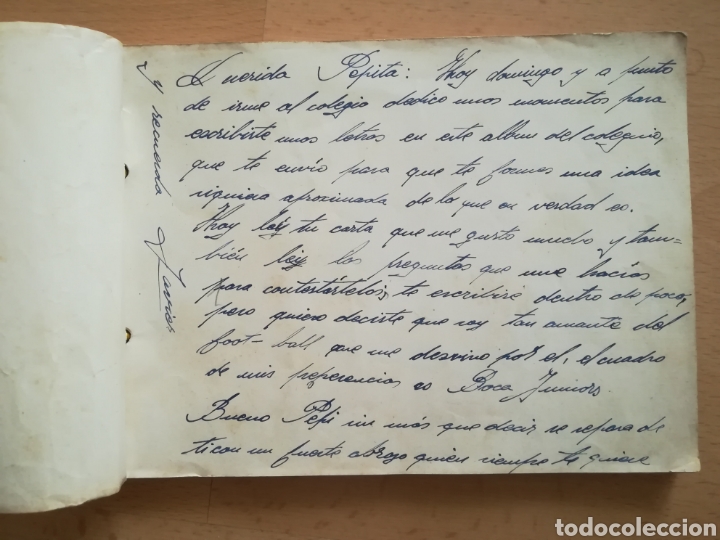 Querida Pepita: Hoy domingo y a punto
de irme al colegio dedico unos momentos para
escribirte unas letras en este album del colegio,
que te envío para que te formes una idea
siquiera aproximada de lo que en verdad es.
Hoy leý tu carta que me gusto mucho, y tam-
bién leý las preguntas que me hacías
para contestártelas, te escribiré dentro de poco,
pero quiero decirte que soy tan amante del
foot-ball que me desvivo por el; el cuadro
de mis preferencias es Boca Juniors.
Bueno Pepi sin más que decir se separa de
ti con un fuerte abrazo quien siempre te quiere
y recuerda Javier
todocoleccion
todocoleccion.net